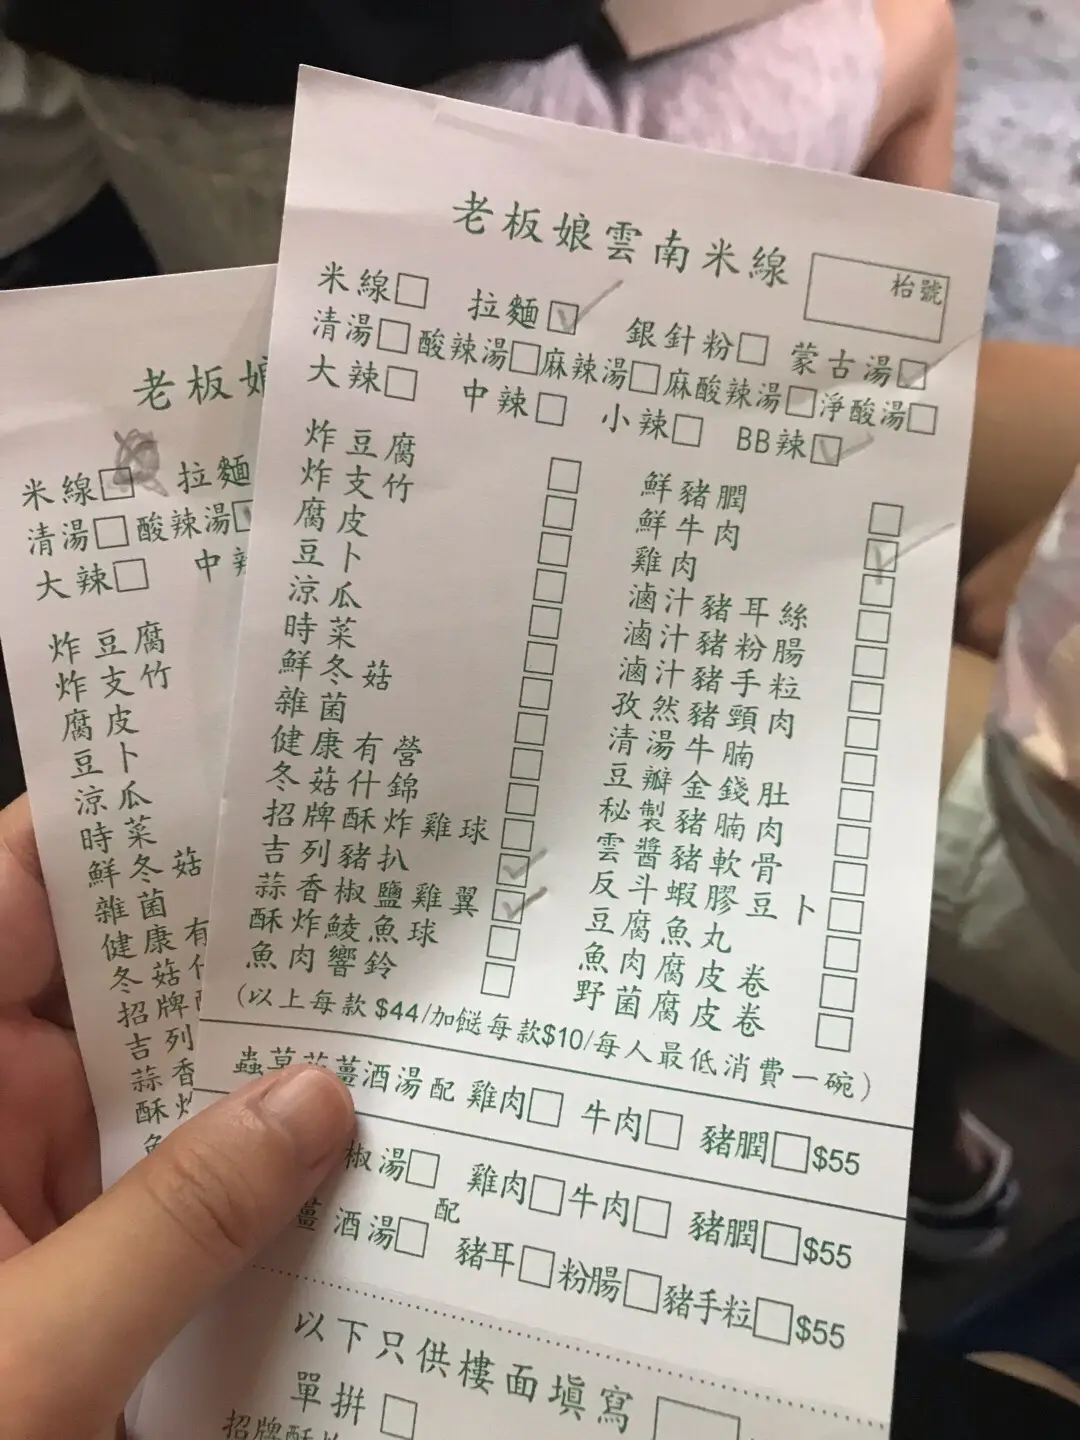 老板娘雲南米線
枱號
米線 拉麵 銀針粉 蒙古湯
清湯 酸辣湯 麻辣湯 麻酸辣湯 淨酸湯
大辣 中辣 小辣 BB辣
炸豆腐
炸支竹
腐皮
豆卜
涼瓜
時菜
鮮冬菇
雜菌
健康有營
冬菇什錦
招牌酥炸雞球
吉列豬扒
蒜香椒鹽雞翼
酥炸鯪魚球
魚肉響鈴
鮮豬膶
鮮牛肉
雞肉
滷汁豬耳絲
滷汁豬粉腸
滷汁豬手粒
孜然豬頸肉
清湯牛腩
豆瓣金錢肚
秘製豬腩肉
雲醬豬軟骨
反斗蝦膠豆卜
豆腐魚丸
魚肉腐皮卷
野菌腐皮卷
(以上每款$44/加餸每款$10/每人最低消費一碗)
蟲草花薑酒湯配 雞肉 牛肉 豬膶 $55
椒湯 雞肉 牛肉 豬膶 $55
配
薑酒湯 豬耳 粉腸 豬手粒 $55
以下只供樓面填寫
單拼
招牌酥炸
老板娘
米線 拉麵
清湯 酸辣湯
大辣 中辣
炸豆腐
炸支竹
腐皮
豆卜
涼瓜
時菜
鮮冬菇
雜菌
健康有
冬菇什
招牌
吉列
蒜香
酥炸
魚